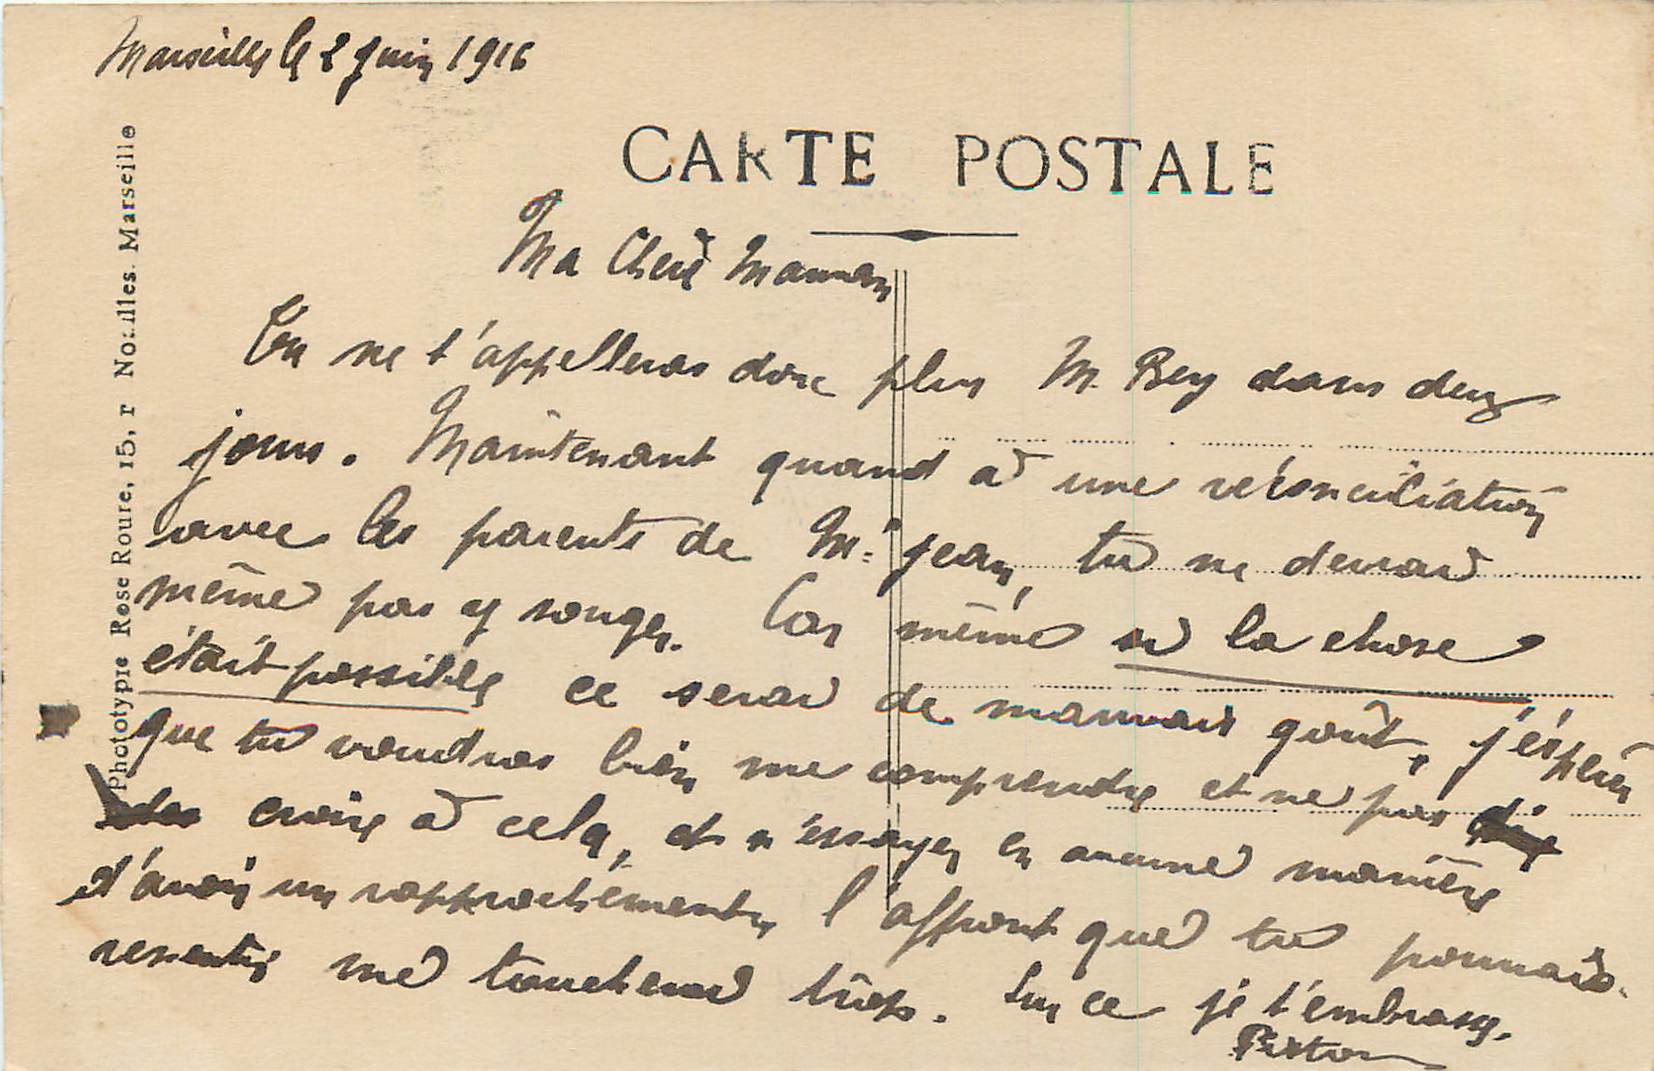 Marseille le 2 juin 1916
CARTE POSTALE
Ma Chère Maman
Tu ne t'appelleras donc plus M. Rey dans deux
jours. Maintenant quand à une réconciliation
avec les parents de Mr Jean, tu ne devrais
même pas y songer. Car même si la chose
était possible ce serai de mauvais goût, j'éspère
que tu voudras bien me comprendre et ne pas
croire à cela, et n'éssayer en aucune manière
d'avoir un rapprochement, l'affront que tu pourrais
resentir me toucherai trop. Sur ce je t'embrasse.
Phototypie Rose Roure, 15, r Noailles. Marseille